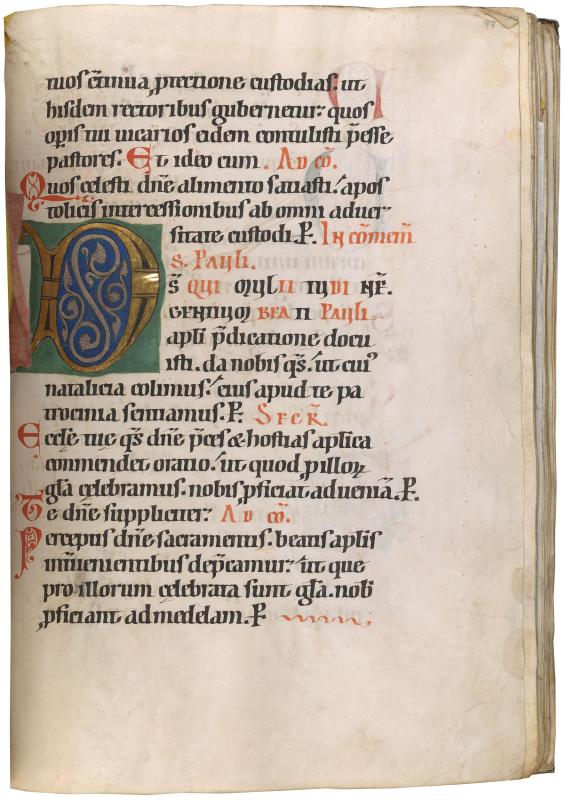 97
tuos c̄tinua ꝓtectione custodias. ut
hisdem rectoribus gubernetur: quos
op̄is tui uicarios eidem contulisti p̄esse
pastores. Et ideo cum. AD CŌ.
Quos celesti dn̄e alimento satiasti: apos
tolicis intercessionibus ab omni aduer
sitate custodi. P̄. IN cōmem̄
S. PAULI.
D
s̄ QUI MULTITUDI NĒ.
GENTIUM BEATI PAULI
apl̄i p̄dicatione docu
isti. da nobis q̄s. ut cui᾽
natalicia colimus. eius apud te pa
trocinia sentiamus. P̄. SECR̄.
Eccl̄e tuę q̄s dn̄e p̄ces & hostias ap̄lica
commendet oratio. ut quod ꝓ illoꝝ
gl̄a celebramus. nobis ꝓficiat ad ueniā. P̄.
Te dn̄e suppliciter: AD CŌ.
Perceptis dn̄e sacramentis. beatis apl̄is
interuenientibus dep̄camur: ut que
pro illorum celebrata sunt gl̄a. nob̄
ꝓficiant ad medelam. P̄